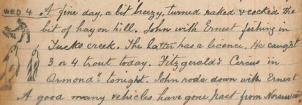 WED 4. A fine day, a bit breezy, turned, raked & cocked the
bit of hay on hill. John with Ernest fishing in
Tucks creek. The latter has a licence. He caught
3 or 4 trout today. Fitzgerald's Circus in
Ormond to-night. John rode down with Ernest
A good many vehicles have gone past from